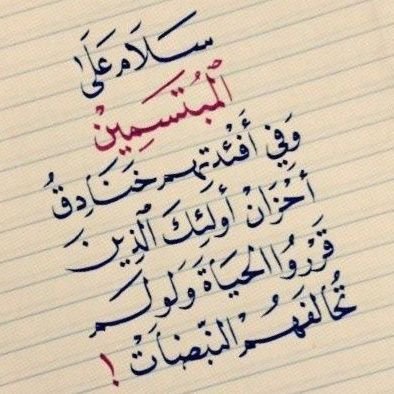 سَلَام عَلَى
الْمُبْتَسِمِينْ
وَفِي أَفْئِدَتِهِم خَنَادِقُ
أَحْزَانْ أُولَئِكَ الَّذِينَ
قَرَّرُوا الحَيَاةَ وَلَو لَم
تُحَالفهُمُ النّبَضَات !